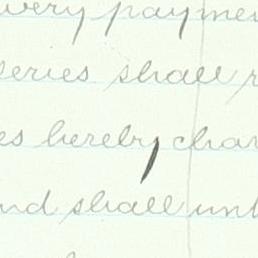 very paymen
series shall r
es hereby char
nd shall unt